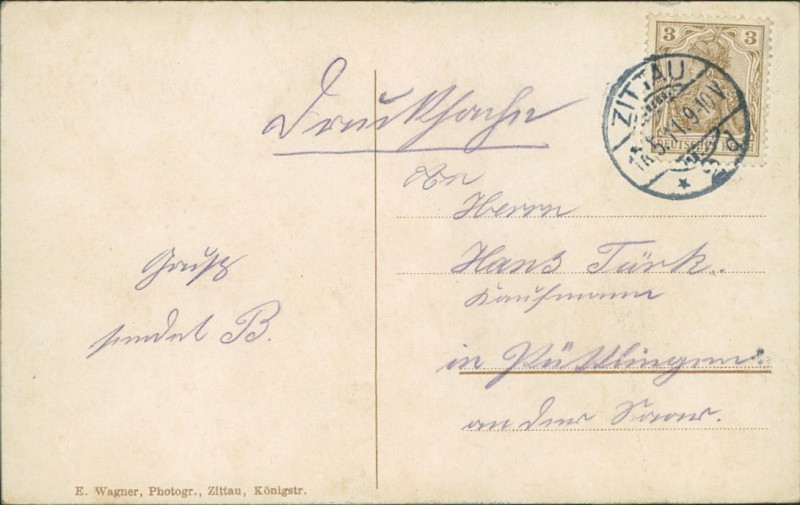 Drucksache
An
Herrn
Hans Türk.
Kaufmann
in Püttlingen.
an der Saar.
Gruß
sendet B.
3 3
DEUTSCHES REICH
ZITTAU
5.11.9-10V.
E. Wagner, Photogr., Zittau, Königstr.